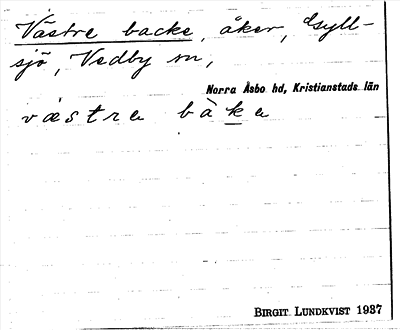 Västre backe, åker, Gyll-
sjö, Vedby sn,
Norra Åsbo hd, Kristianstads län
væstra bàka
BIRGIT LUNDKVIST 1937